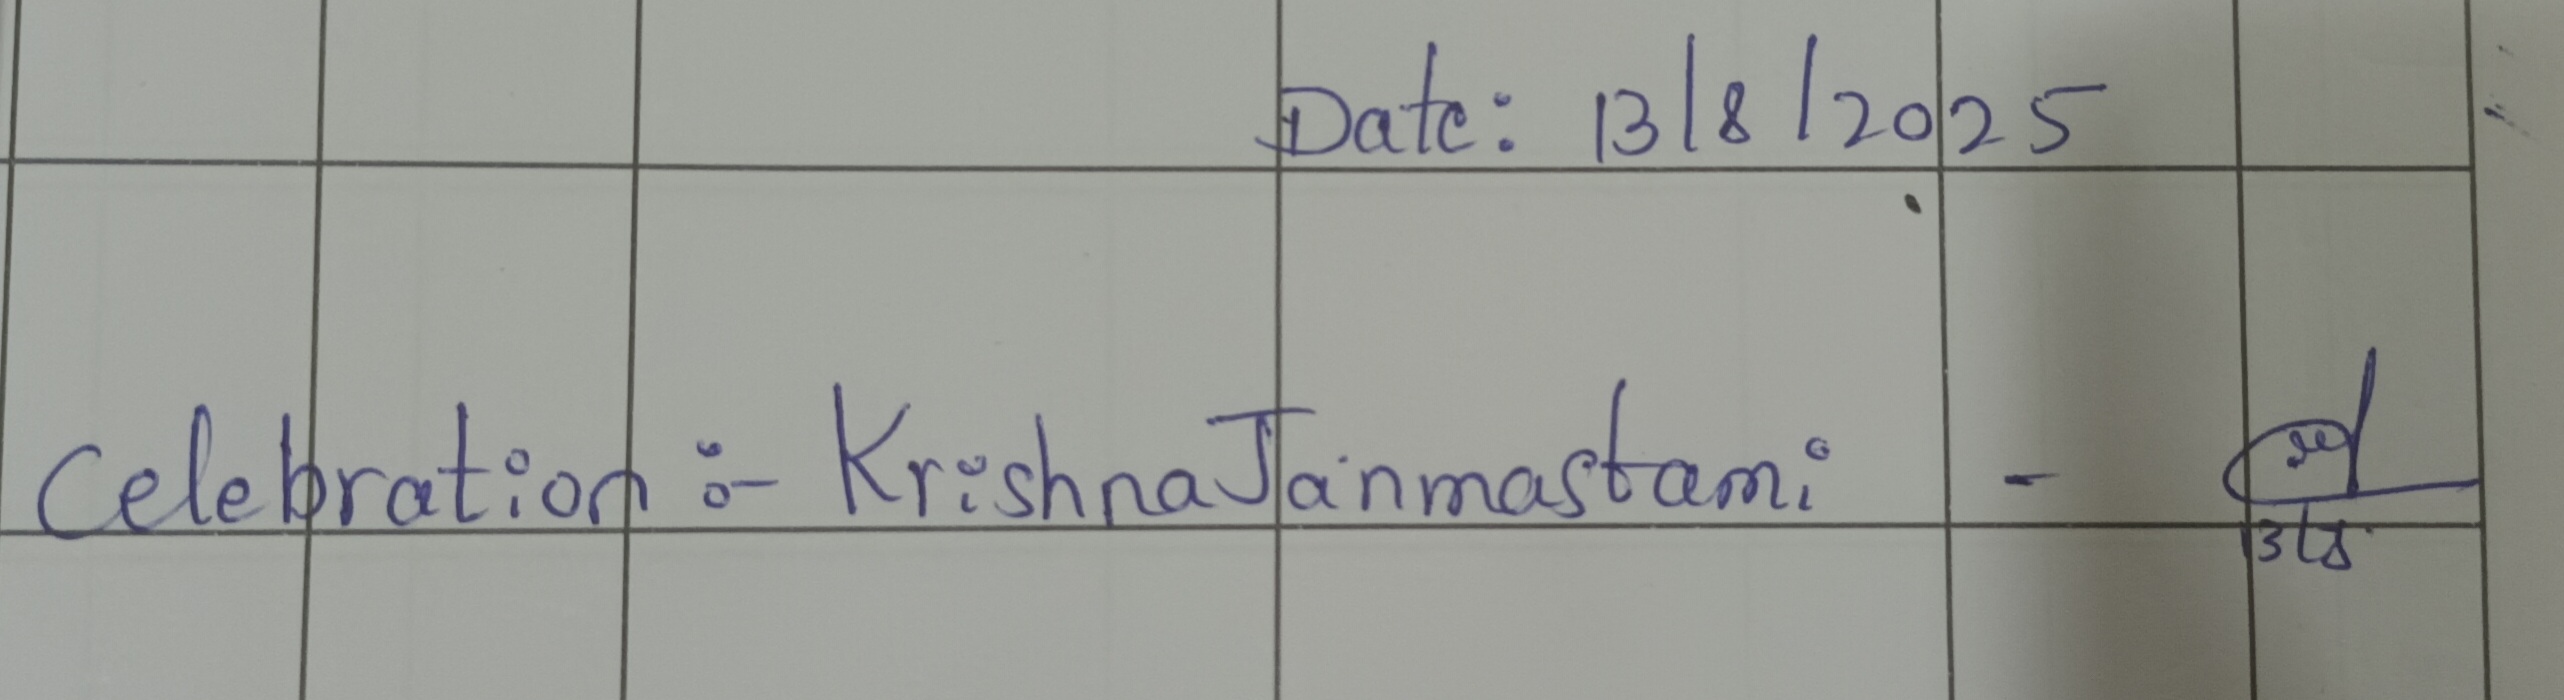 Date: 13/8/2025
Celebration :- Krishna Janmastami -
13/8